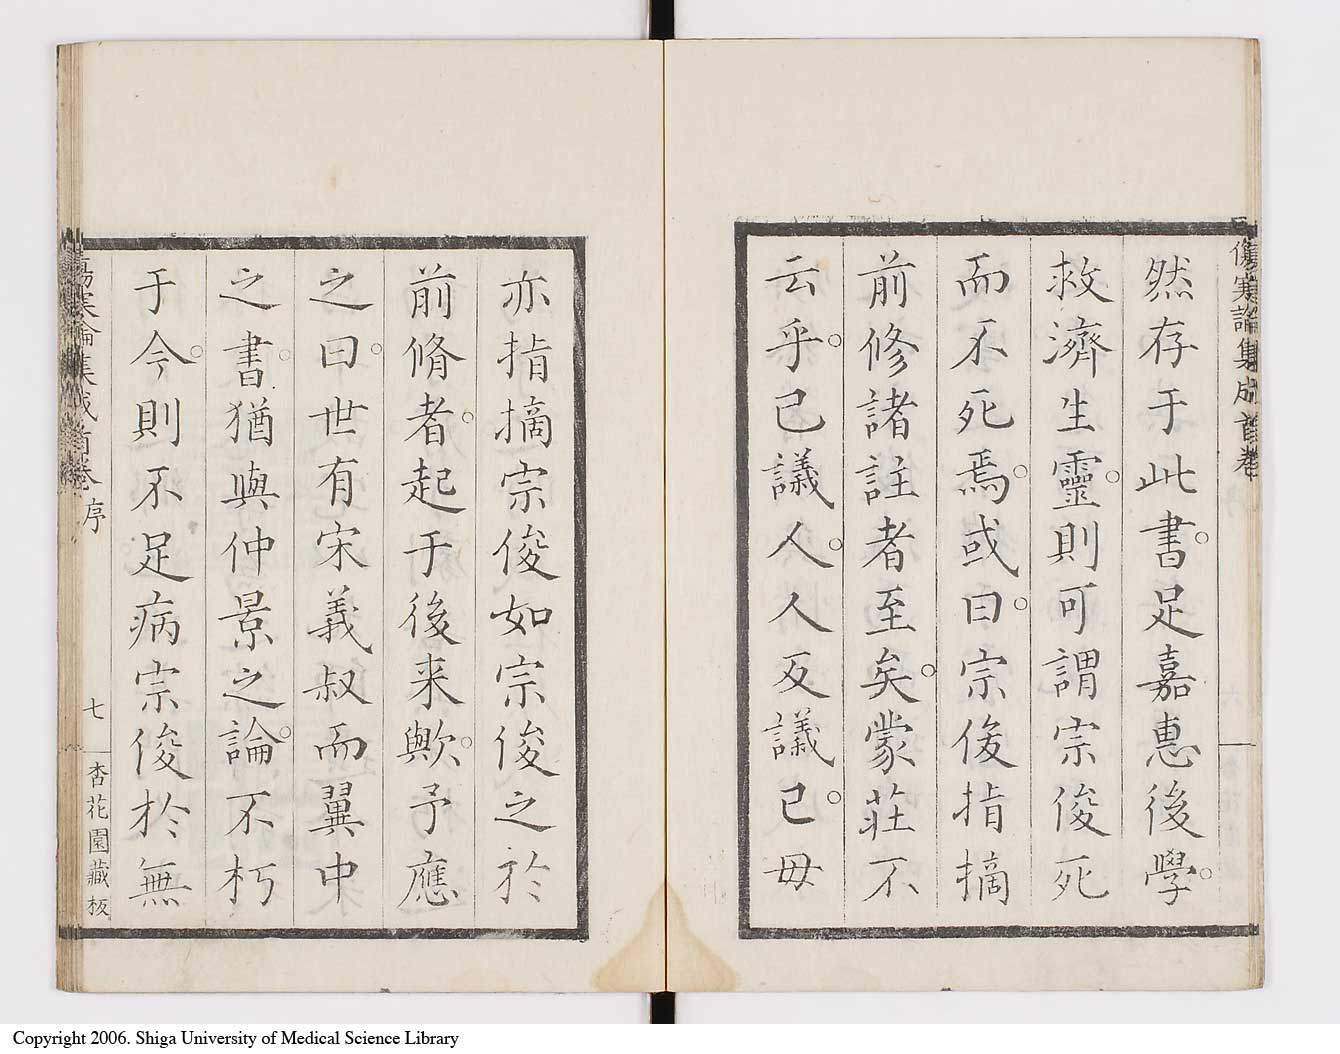 傷寒論集成首卷
然存于此書○足嘉惠後學○
救濟生靈○則可謂宗俊死
而不死焉○或曰○宗俊指摘
前修諸註者至矣○蒙莊不
云乎○己議人○人反議己○毋
亦指摘宗俊如宗俊之於
前脩者○起于後来歟○予應
之曰○世有宋義叔而翼中
之○書猶與仲景之論○不朽
于今○則不足病宗俊於無
傷寒論集成首卷 序
七
杏花園藏板
Copyright 2006. Shiga University of Medical Science Library